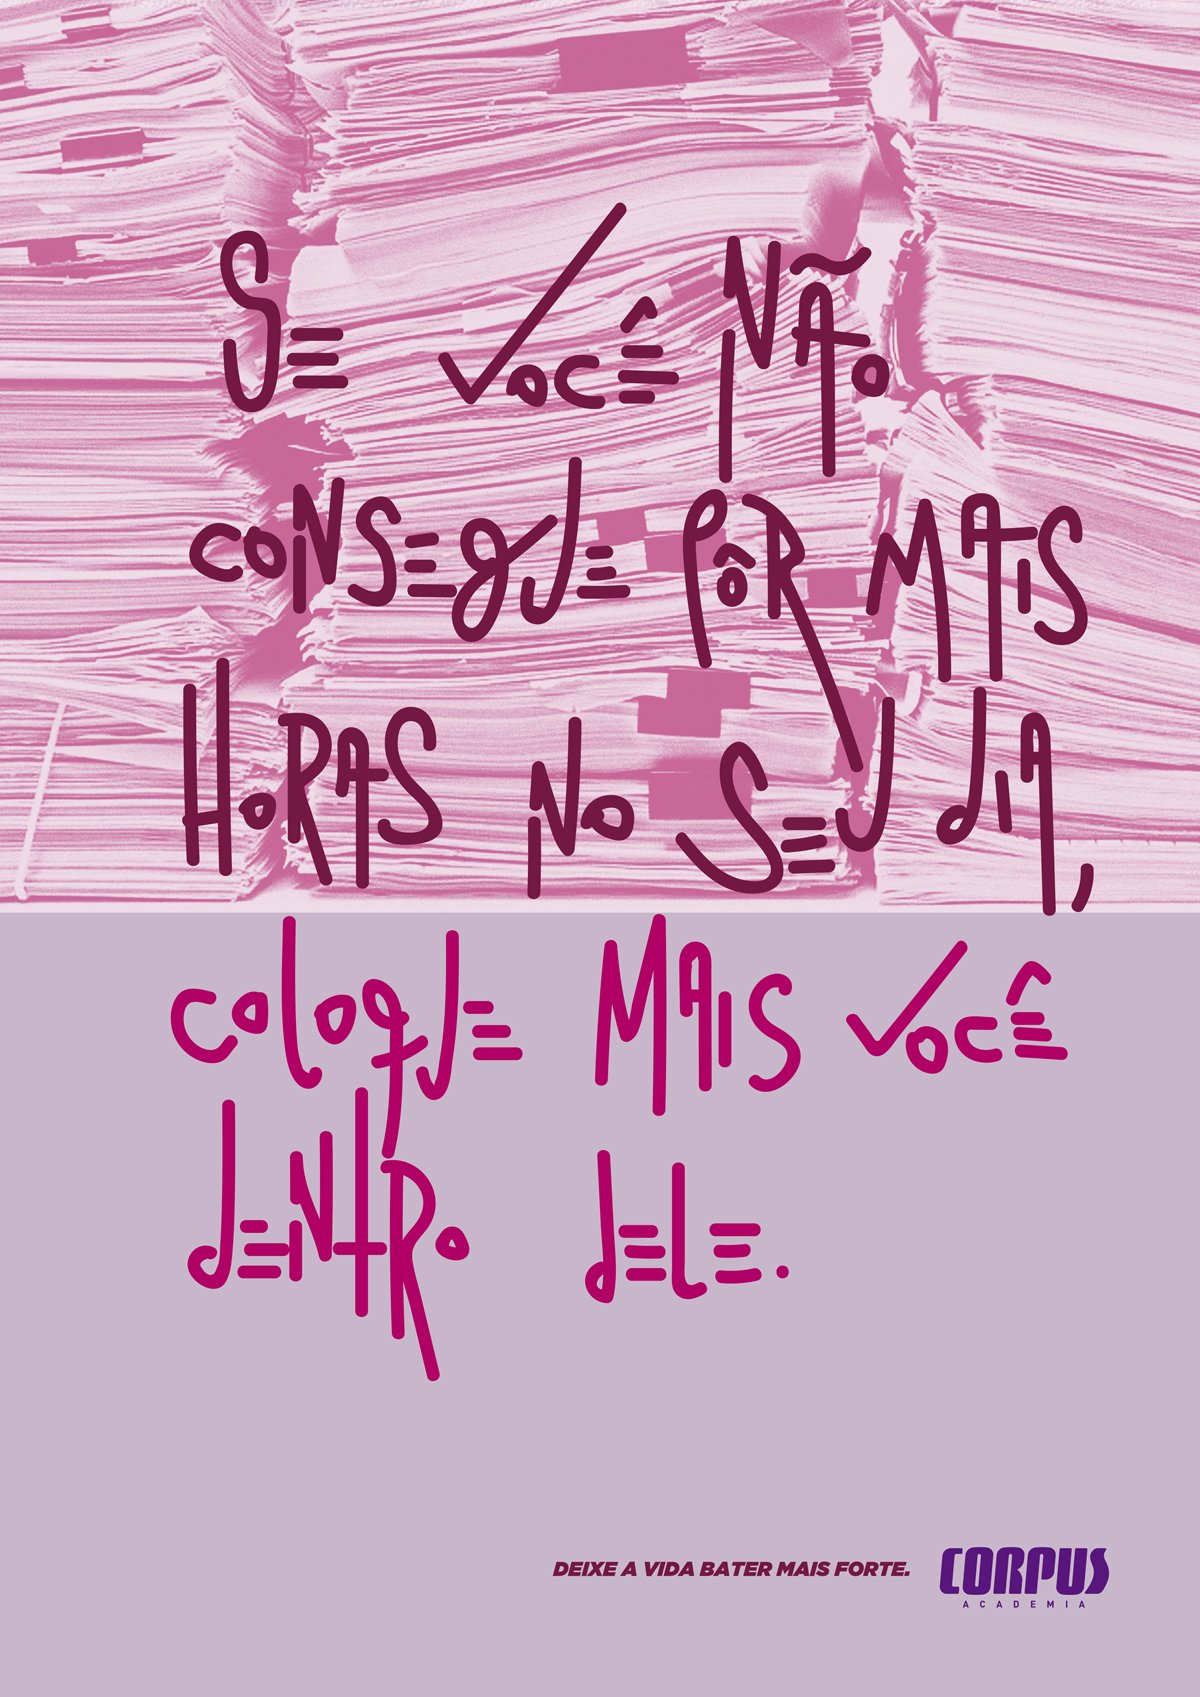 SE VOCÊ NÃO
CONSEGUE PÔR MAIS
HORAS NO SEU DIA,
COLOQUE MAIS VOCÊ
DENTRO DELE.
DEIXE A VIDA BATER MAIS FORTE.
CORPUS
ACADEMIA